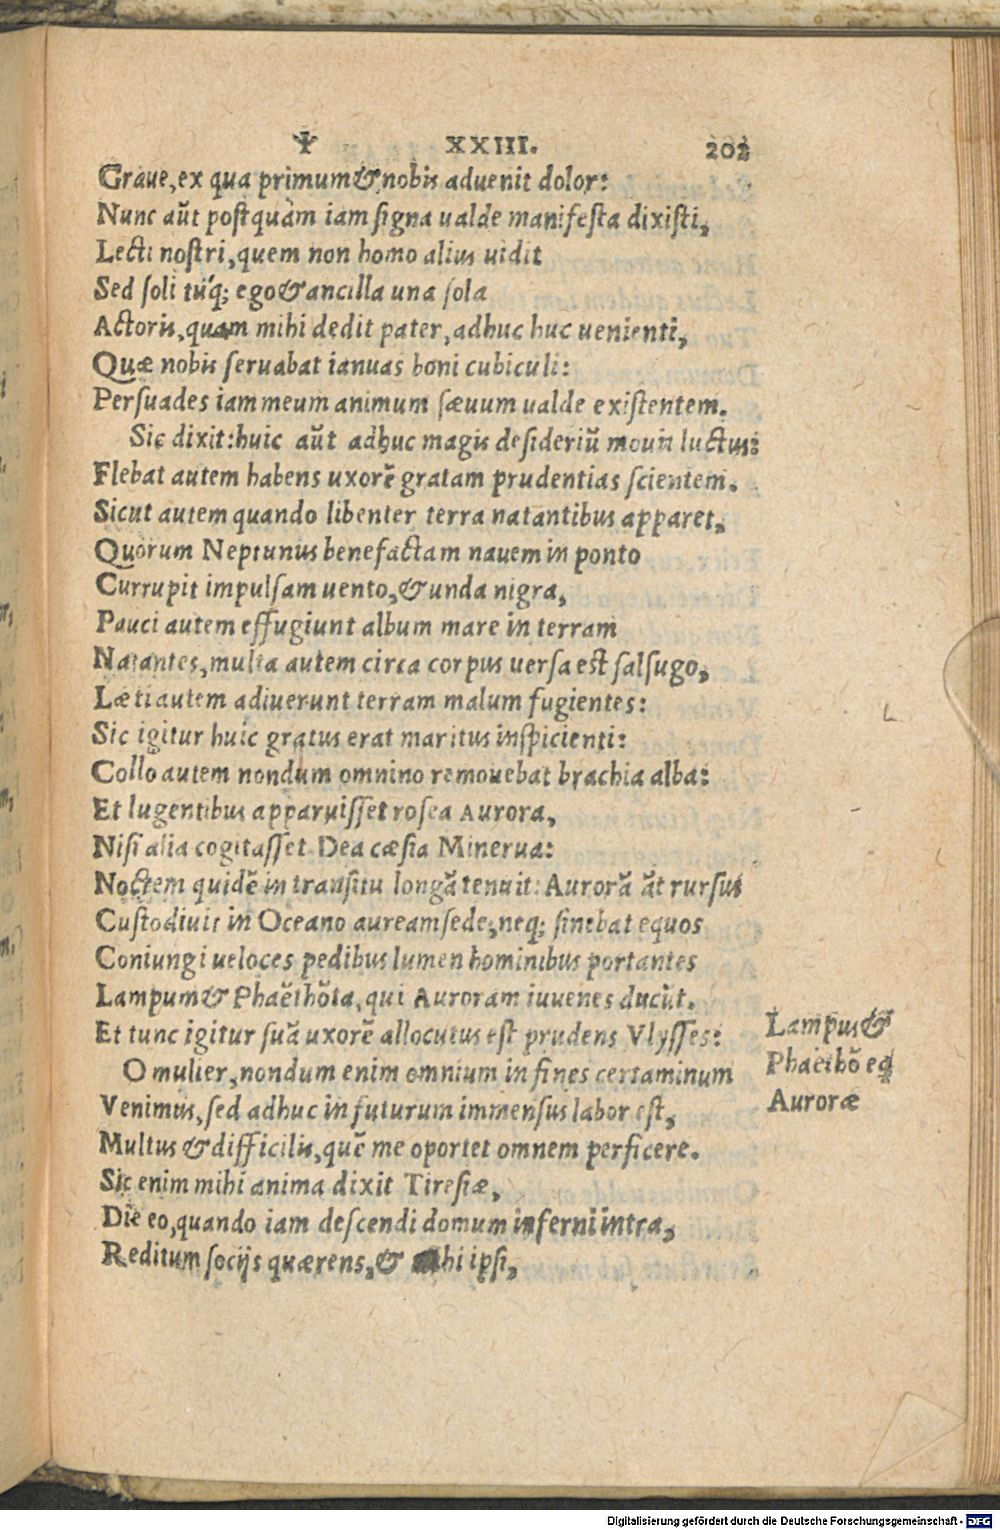 Ψ XXIII. 202
Graue, ex qua primum & nobis aduenit dolor:
Nunc aũt postquàm iam signa ualde manifesta dixisti,
Lecti nostri, quem non homo alius uidit
Sed soli tuq́; ego & ancilla una sola
Actoris, quam mihi dedit pater, adhuc huc uenienti,
Quæ nobis seruabat ianuas boni cubiculi:
Persuades iam meum animum sæuum ualde existentem.
Sic dixit: huic aũt adhuc magis desideriũ mouit luctus:
Flebat autem habens uxorẽ gratam prudentias scientem.
Sicut autem quando libenter terra natantibus apparet,
Quorum Neptunus benefactam nauem in ponto
Currupit impulsam uento, & unda nigra,
Pauci autem effugiunt album mare in terram
Natantes, multa autem circa corpus uersa est salsugo,
Læti autem adiuerunt terram malum fugientes:
Sic igitur huic gratus erat maritus inspicienti:
Collo autem nondum omnino remouebat brachia alba:
Et lugentibus apparuisset rosea Aurora,
Nisi alia cogitasset Dea cæsia Minerua:
Noctem quidẽ in transitu longã tenuit: Aurorã āt rursus
Custodiuit in Oceano auream sede, neq; sinebat equos
Coniungi ueloces pedibus lumen hominibus portantes
Lampum & Phaẽthõta, qui Auroram iuuenes ducũt.
Et tunc igitur suã uxorẽ allocutus est prudens Vlysses:
O mulier, nondum enim omnium in fines certaminum
Venimus, sed adhuc in futurum immensus labor est,
Multus & difficilis, quẽ me oportet omnem perficere.
Sic enim mihi anima dixit Tiresiæ,
Die eo, quando iam descendi domum inferni intra,
Reditum socijs quærens, & ipsi,
Lampus &
Phaẽthõ eq
Auroræ
Digitalisierung gefördert durch die Deutsche Forschungsgemeinschaft - DFG